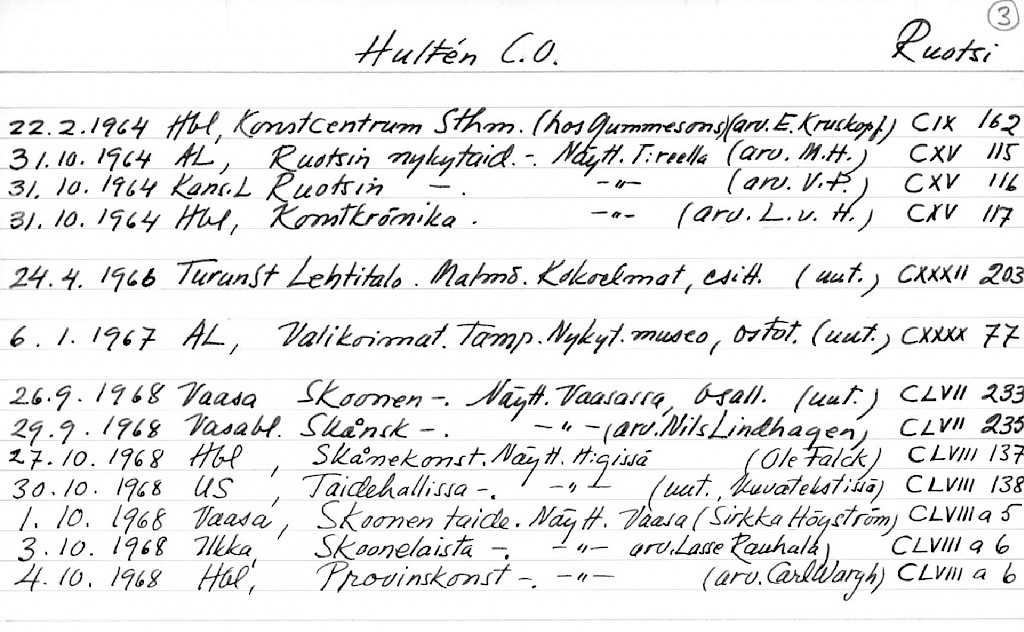 3
Hultén C.O. Ruotsi
22.2.1964 Hbl, Konstcentrum Sthm. (hos Gummesons)(arv. E. Kruskopf) CIX 162
31.10.1964 AL, Ruotsin nykytaid. -. Näytt. T:reella (arv. M.H.) CXV 115
31.10.1964 Kans.L Ruotsin -. -"- (arv. V.P.) CXV 116
31.10.1964 Hbl, Konstkrönika. -"- (arv. L.v.H.) CXV 117
24.4.1966 TurunSt Lehtitalo. Malmö. Kokoelmat, esitt. (uut.) CXXXII 203
6.1.1967 AL, Valikoimat. Tamp. Nykyt. museo, ostot. (uut.) CXXXX 77
26.9.1968 Vaasa Skoonen -. Näytt. Vaasassa, osall. (uut.) CLVII 233
29.9.1968 Vasabl. Skånsk -. -"- (arv. Nils Lindhagen) CLVII 235
27.10.1968 Hbl, Skånekonst. Näytt. H:gissä (Ole Falck) CLVIII 137
30.10.1968 US, Taidehallissa -. -"- (uut., kuvatekstissä) CLVIII 138
1.10.1968 Vaasa, Skoonen taide. Näytt. Vaasa (Sirkka Höyström) CLVIII a 5
3.10.1968 Ilkka, Skoonelaista -. -"- arv. Lasse Rauhala) CLVIII a 6
4.10.1968 Hbl, Provinskonst -. -"- (arv. Carl Wargh) CLVIII a 6